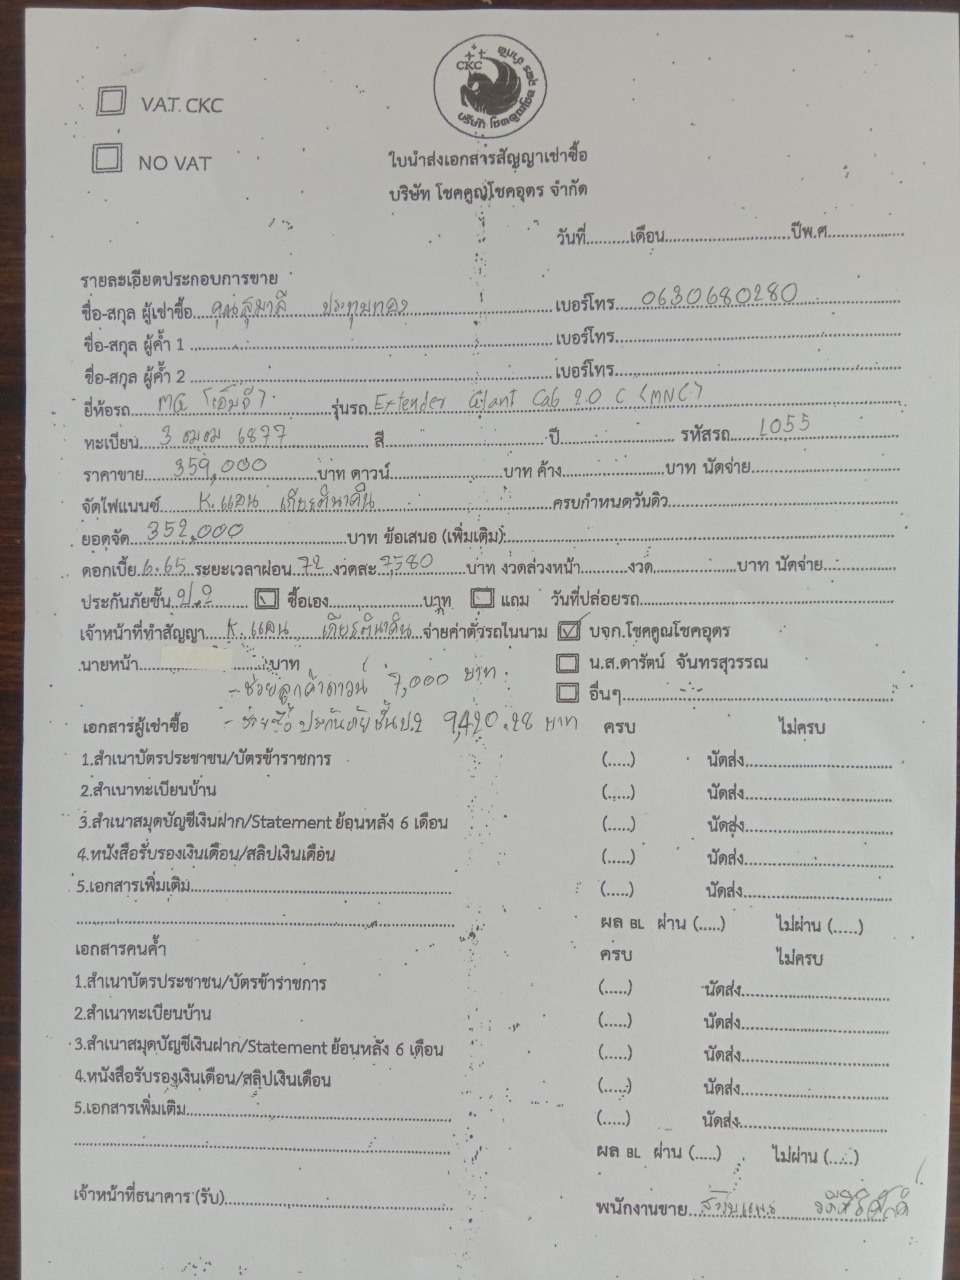 VAT. CKC
NO VAT
CKC
ใบนำส่งเอกสารสัญญาเช่าซื้อ
บริษัท โชคคูณโชคอุดร จำกัด
วันที่.........เดือน..............................ปีพ.ศ..................
รายละเอียดประกอบการขาย
ชื่อ-สกุล ผู้เช่าซื้อ คุณสุมาลี ประทุมทอง เบอร์โทร 0630680280
ชื่อ-สกุล ผู้ค้ำ 1 .................... เบอร์โทร....................
ชื่อ-สกุล ผู้ค้ำ 2 .................... เบอร์โทร....................
ยี่ห้อรถ MG (เอ็มจี) รุ่นรถ Extender Giant Cab 2.0 C (MNC)
ทะเบียน 3 ฒฒ 6877 สี.................... ปี.................... รหัสรถ 1055
ราคาขาย 359,000 บาท ดาวน์....................บาท ค้าง....................บาท นัดจ่าย....................
จัดไฟแนนซ์ K.แอน เกียรตินาคิน ครบกำหนดวันดิว....................
ยอดจัด 352,000 บาท ข้อเสนอ (เพิ่มเติม):....................
ดอกเบี้ย 6.65 ระยะเวลาผ่อน 72 งวดละ 7580 บาท งวดล่วงหน้า..........งวด....................บาท นัดจ่าย....................
ประกันภัยชั้น ป.2 ซื้อเอง....................บาท แถม วันที่ปล่อยรถ....................
เจ้าหน้าที่ทำสัญญา K. แอน เกียรตินาคิน จ่ายค่าตัวรถในนาม บจก.โชคคูณโชคอุดร
นายหน้า....................บาท น.ส.ดารัตน์ จันทรสุวรรณ
- ช่วยลูกค้าดาวน์ 7,000 บาท. อื่นๆ....................
เอกสารผู้เช่าซื้อ - ช่วยซื้อประกันภัยชั้น ป.2 9,420.28 บาท ครบ ไม่ครบ
1.สำเนาบัตรประชาชน/บัตรข้าราชการ (.....) นัดส่ง....................
2.สำเนาทะเบียนบ้าน (.....) นัดส่ง....................
3.สำเนาสมุดบัญชีเงินฝาก/Statement ย้อนหลัง 6 เดือน (.....) นัดส่ง....................
4.หนังสือรับรองเงินเดือน/สลิปเงินเดือน (.....) นัดส่ง....................
5.เอกสารเพิ่มเติม.................... (.....) นัดส่ง....................
ผล BL ผ่าน (.....) ไม่ผ่าน (.....)
เอกสารคนค้ำ ครบ ไม่ครบ
1.สำเนาบัตรประชาชน/บัตรข้าราชการ (.....) นัดส่ง....................
2.สำเนาทะเบียนบ้าน (.....) นัดส่ง....................
3.สำเนาสมุดบัญชีเงินฝาก/Statement ย้อนหลัง 6 เดือน (.....) นัดส่ง....................
4.หนังสือรับรองเงินเดือน/สลิปเงินเดือน (.....) นัดส่ง....................
5.เอกสารเพิ่มเติม.................... (.....) นัดส่ง....................
ผล BL ผ่าน (.....) ไม่ผ่าน (.....)
เจ้าหน้าที่ธนาคาร (รับ).................... พนักงานขาย